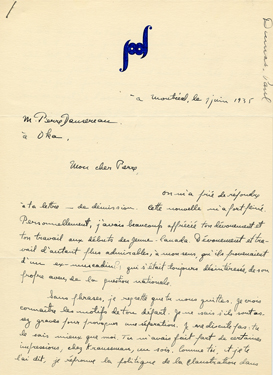 à Montréal, le 5 juin 1935
M Pierre Dansereau
à Oka.
Mon cher Pierre
on m'a prié de répondre
à ta lettre de démission. Cette nouvelle m'a fort peiné.
Personnellement, j'avais beaucoup apprécié ton dévouement et
ton travail aux débuts des Jeune-Canada. Dévouement et tra-
vail d'autant plus admirables, à mon sens, qu'ils provenaient
d'un ex-muscadin qui s'était toujours désintéressé, de son
propre aveu, de la question nationale.
Sans phrases, je regrette que tu nous quittes. Je vou
connaître les motifs de ton départ. Je ne sais s'ils sont as-
sez graves pour provoquer une séparation. Je ne discute pas: tu
le sais mieux que moi. Tu m'avais fait part de certaines
impressions chez Krausmann, un soir. Comme toi, et je te
l'ai dit, je réprouve la politique de la claustration dans
Dumas, Paul